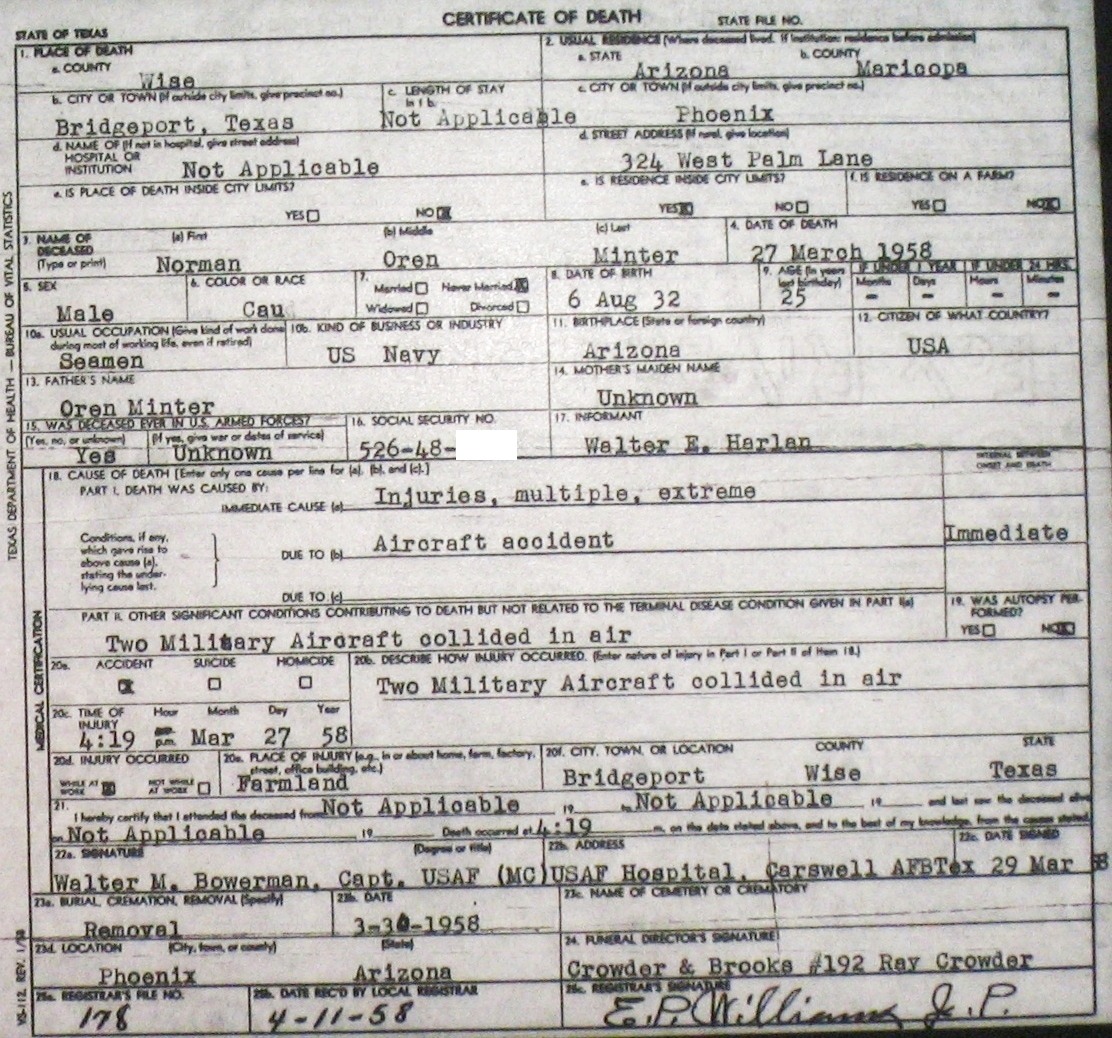 CERTIFICATE OF DEATH
STATE OF TEXAS
STATE FILE NO.
1. PLACE OF DEATH
a. COUNTY
Wise
2. USUAL RESIDENCE (Where deceased lived. If institution: residence before admission)
a. STATE
Arizona
b. COUNTY
Maricopa
b. CITY OR TOWN (If outside city limits, give precinct no.)
Bridgeport, Texas
c. LENGTH OF STAY
in 1 b.
Not Applicable
c. CITY OR TOWN (If outside city limits, give precinct no.)
Phoenix
d. NAME OF (If not in hospital, give street address)
HOSPITAL OR
INSTITUTION
Not Applicable
d. STREET ADDRESS (If rural, give location)
324 West Palm Lane
e. IS PLACE OF DEATH INSIDE CITY LIMITS?
YES NO
e. IS RESIDENCE INSIDE CITY LIMITS?
YES NO
f. IS RESIDENCE ON A FARM?
YES NO
3. NAME OF
DECEASED
(Type or print)
(a) First
Norman
(b) Middle
Oren
(c) Last
Minter
4. DATE OF DEATH
27 March 1958
5. SEX
Male
6. COLOR OR RACE
Cau
7.
Married Never Married
Widowed Divorced
8. DATE OF BIRTH
6 Aug 32
9. AGE (In years
last birthday)
25
IF UNDER 1 YEAR
Months Days
- -
IF UNDER 24 HRS.
Hours Minutes
- -
10a. USUAL OCCUPATION (Give kind of work done
during most of working life, even if retired)
Seaman
10b. KIND OF BUSINESS OR INDUSTRY
US Navy
11. BIRTHPLACE (State or foreign country)
Arizona
12. CITIZEN OF WHAT COUNTRY?
USA
13. FATHER'S NAME
Oren Minter
14. MOTHER'S MAIDEN NAME
Unknown
15. WAS DECEASED EVER IN U.S. ARMED FORCES?
(Yes, no, or unknown)
Yes
(If yes, give war or dates of service)
Unknown
16. SOCIAL SECURITY NO.
526-48-
17. INFORMANT
Walter E. Harlan
18. CAUSE OF DEATH [Enter only one cause per line for (a), (b), and (c).]
INTERVAL BETWEEN
ONSET AND DEATH
PART I. DEATH WAS CAUSED BY:
IMMEDIATE CAUSE (a)
Injuries, multiple, extreme
Conditions, if any,
which gave rise to
above cause (a),
stating the under-
lying cause last.
DUE TO (b)
Aircraft accident
Immediate
DUE TO (c)
PART II. OTHER SIGNIFICANT CONDITIONS CONTRIBUTING TO DEATH BUT NOT RELATED TO THE TERMINAL DISEASE CONDITION GIVEN IN PART I(a)
Two Military Aircraft collided in air
19. WAS AUTOPSY PER-
FORMED?
YES NO
20a.
ACCIDENT SUICIDE HOMICIDE
20b. DESCRIBE HOW INJURY OCCURRED. (Enter nature of injury in Part I or Part II of Item 18.)
Two Military Aircraft collided in air
20c. TIME OF
INJURY
Hour Month Day Year
4:19 p.m. Mar 27 58
20d. INJURY OCCURRED
WHILE AT
WORK
NOT WHILE
AT WORK
20e. PLACE OF INJURY (e.g., in or about home, farm, factory,
street, office building, etc.)
Farmland
20f. CITY, TOWN, OR LOCATION COUNTY STATE
Bridgeport Wise Texas
21.
I hereby certify that I attended the deceased from Not Applicable, 19 to Not Applicable 19 and last saw the deceased alive
on Not Applicable 19 Death occurred at 4:19 m, on the date stated above, and to the best of my knowledge, from the causes stated.
22a. SIGNATURE (Degree or title)
Walter M. Bowerman, Capt. USAF (MC)
22b. ADDRESS
USAF Hospital, Carswell AFBTex
22c. DATE SIGNED
29 Mar 58
23a. BURIAL, CREMATION, REMOVAL (Specify)
Removal
23b. DATE
3-30-1958
23c. NAME OF CEMETERY OR CREMATORY
23d. LOCATION (City, town, or county) (State)
Phoenix Arizona
24. FUNERAL DIRECTOR'S SIGNATURE
Crowder & Brooks #192 Ray Crowder
25a. REGISTRAR'S FILE NO.
178
25b. DATE REC'D BY LOCAL REGISTRAR
4-11-58
25c. REGISTRAR'S SIGNATURE
E.P. Williams J.P.
TEXAS DEPARTMENT OF HEALTH — BUREAU OF VITAL STATISTICS
MEDICAL CERTIFICATION
VS-112, REV. 1/58